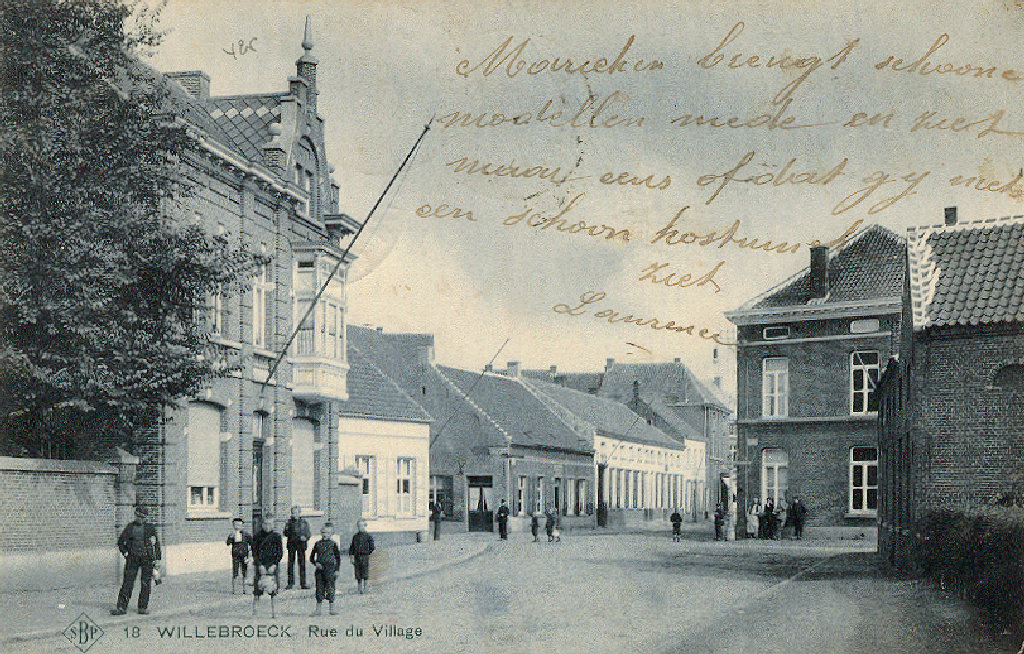 Marieken brengt schoone
modellen mede en ziet
maar eens of dat gy met
een schoon kostum
ziet
Laurence
SBP 18 WILLEBROECK Rue du Village